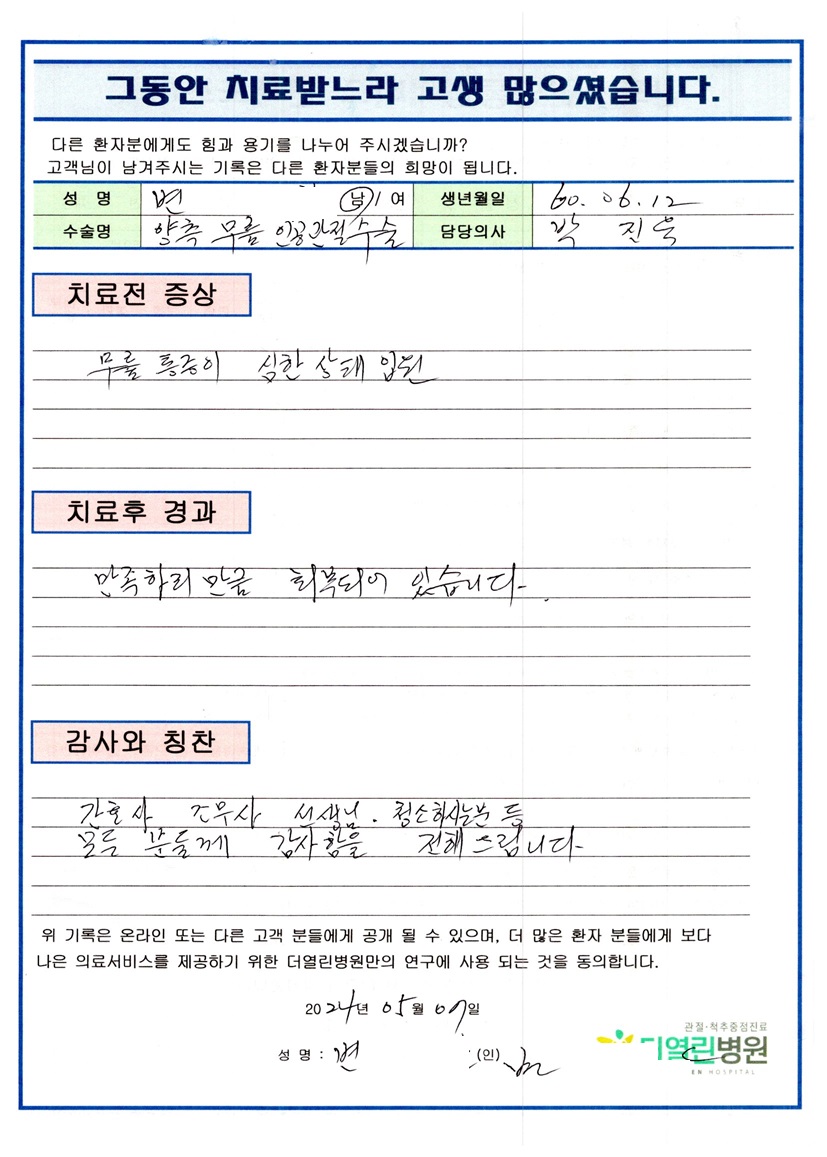 그동안 치료받느라 고생 많으셨습니다.
다른 환자분에게도 힘과 용기를 나누어 주시겠습니까?
고객님이 남겨주시는 기록은 다른 환자분들의 희망이 됩니다.
성 명 변 남 / 여 생년월일 60. 06. 12
수술명 양측 무릎 인공관절수술 담당의사 박 진욱
치료전 증상
무릎 통증이 심한 상태 입원
치료후 경과
만족하리 만큼 회복되어 있습니다.
감사와 칭찬
간호사 조무사 선생님. 청소하시는분 등
모든 분들께 감사함을 전해 드립니다.
위 기록은 온라인 또는 다른 고객 분들에게 공개 될 수 있으며, 더 많은 환자 분들에게 보다
나은 의료서비스를 제공하기 위한 더열린병원만의 연구에 사용 되는 것을 동의합니다.
2024년 05월 07일
성 명 : 변 (인)
관절·척추중점진료
더열린병원
EN HOSPITAL